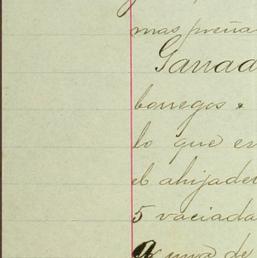 mas preña
Ganad
borregos
lo que en
el ahijader
5 vaciada
una de